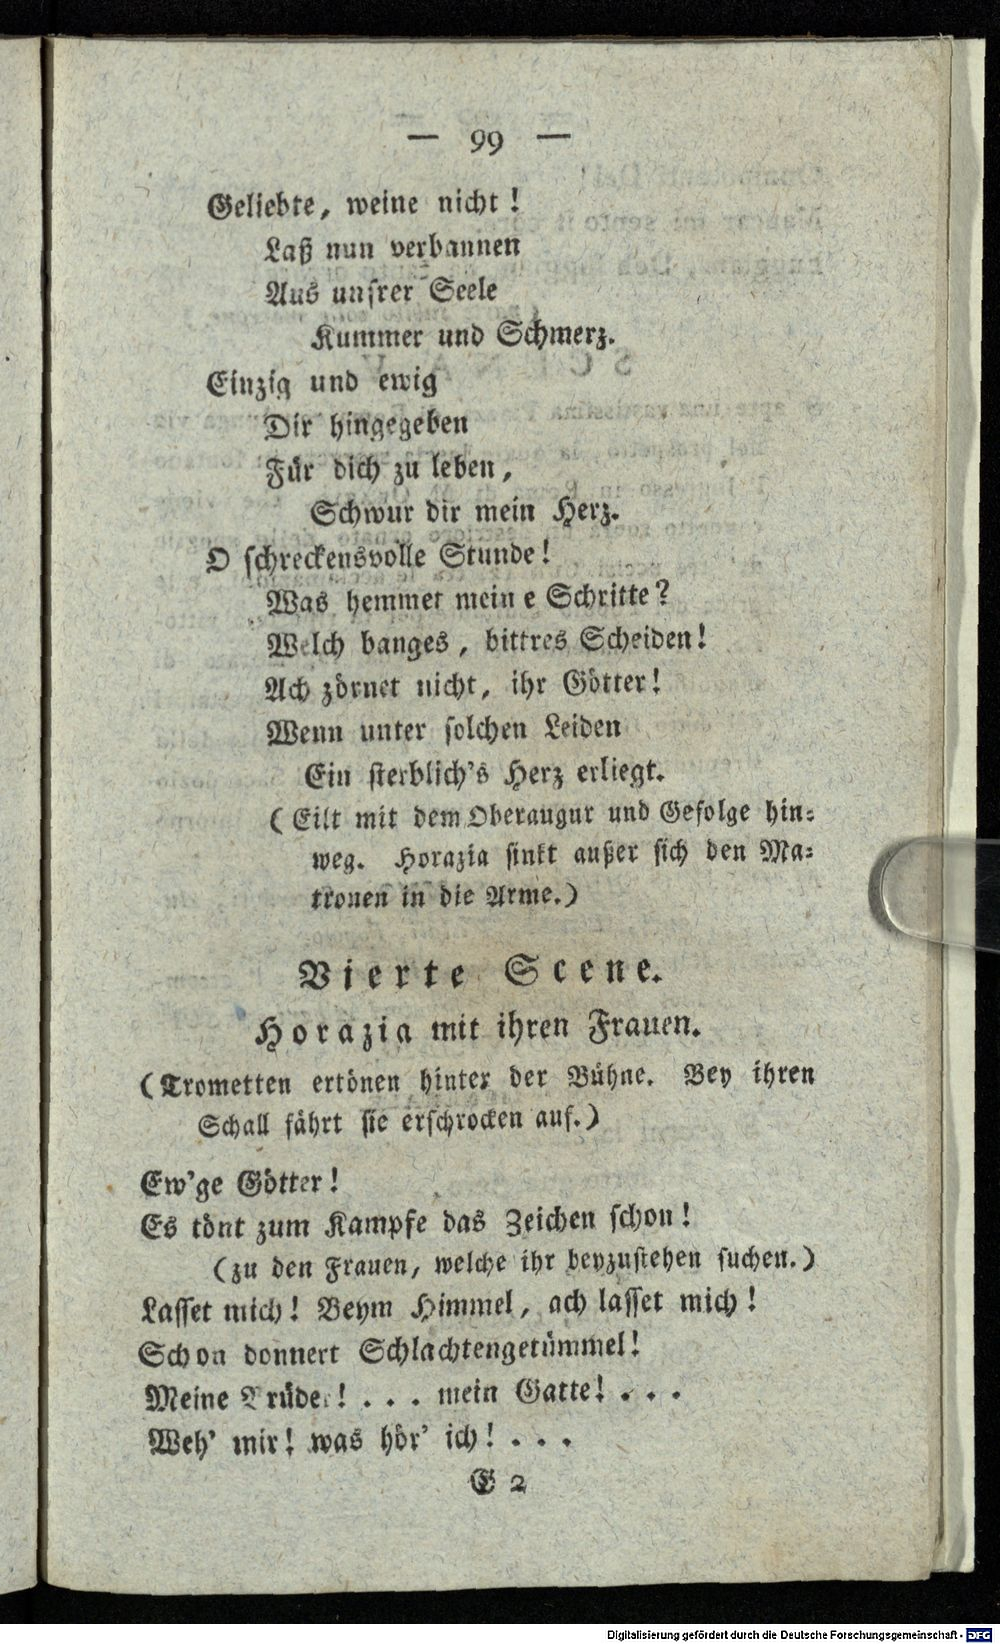 — 99 —
Geliebte, weine nicht!
Laß nun verbannen
Aus unsrer Seele
Kummer und Schmerz.
Einzig und ewig
Dir hingegeben
Für dich zu leben,
Schwur dir mein Herz.
O schreckensvolle Stunde!
Was hemmet meine Schritte?
Welch banges, bittres Scheiden!
Ach zörnet nicht, ihr Götter!
Wenn unter solchen Leiden
Ein sterblich's Herz erliegt.
(Eilt mit dem Oberaugur und Gefolge hin-
weg. Horazia sinkt außer sich den Ma-
tronen in die Arme.)
Vierte Scene.
Horazia mit ihren Frauen.
(Trometten ertönen hinter der Bühne. Bey ihren
Schall fährt sie erschrocken auf.)
Ew'ge Götter!
Es tönt zum Kampfe das Zeichen schon!
(zu den Frauen, welche ihr beyzustehen suchen.)
Lasset mich! Beym Himmel, ach lasset mich!
Schon donnert Schlachtengetümmel!
Meine Brüder! . . . mein Gatte! . . .
Weh' mir! was hör' ich! . . .
E 2
Digitalisierung gefördert durch die Deutsche Forschungsgemeinschaft - DFG